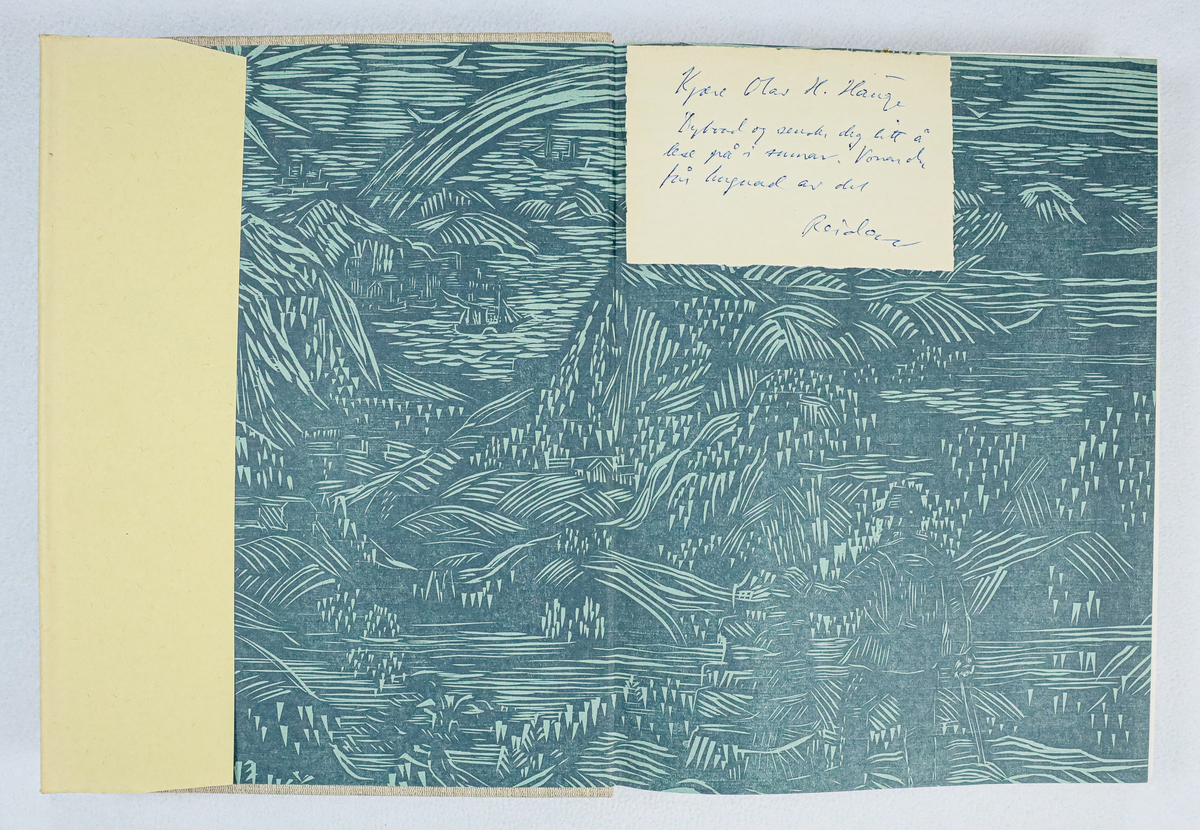 Kjære Olav H. Hauge
og sender deg litt å
lese på i sumar. Vonar du
får hugnad av det
Reidar